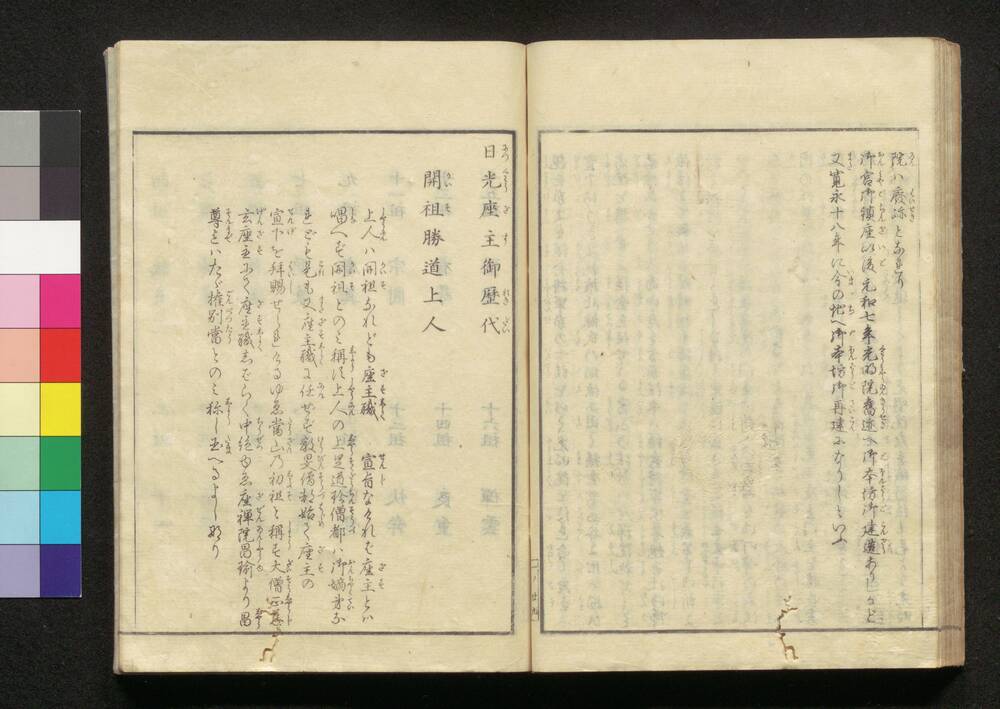 院ハ廢跡となれり
御宮御鎮座以後元和七年光明院舊迹へ御本坊御建造ありしかど
又寛永十八年に今の地へ御本坊御再建になりしといふ
日光座主御歴代
開祖勝道上人
上人ハ開祖なれども座主職 宣旨なけれバ座主とハ
唱へず開祖とのミ稱す上人の上足道珍僧都ハ御嫡弟な
れども是も又座主職に任せず教旻僧都始て座主の
宣下を拜賜せられけるゆゑ當山乃初祖と稱す大僧正慈
玄座主にて座主職志ばらく中絶ゆゑ座禪院昌瑜より昌
尊までハたゞ權別當とのミ稱し玉へるよしなり